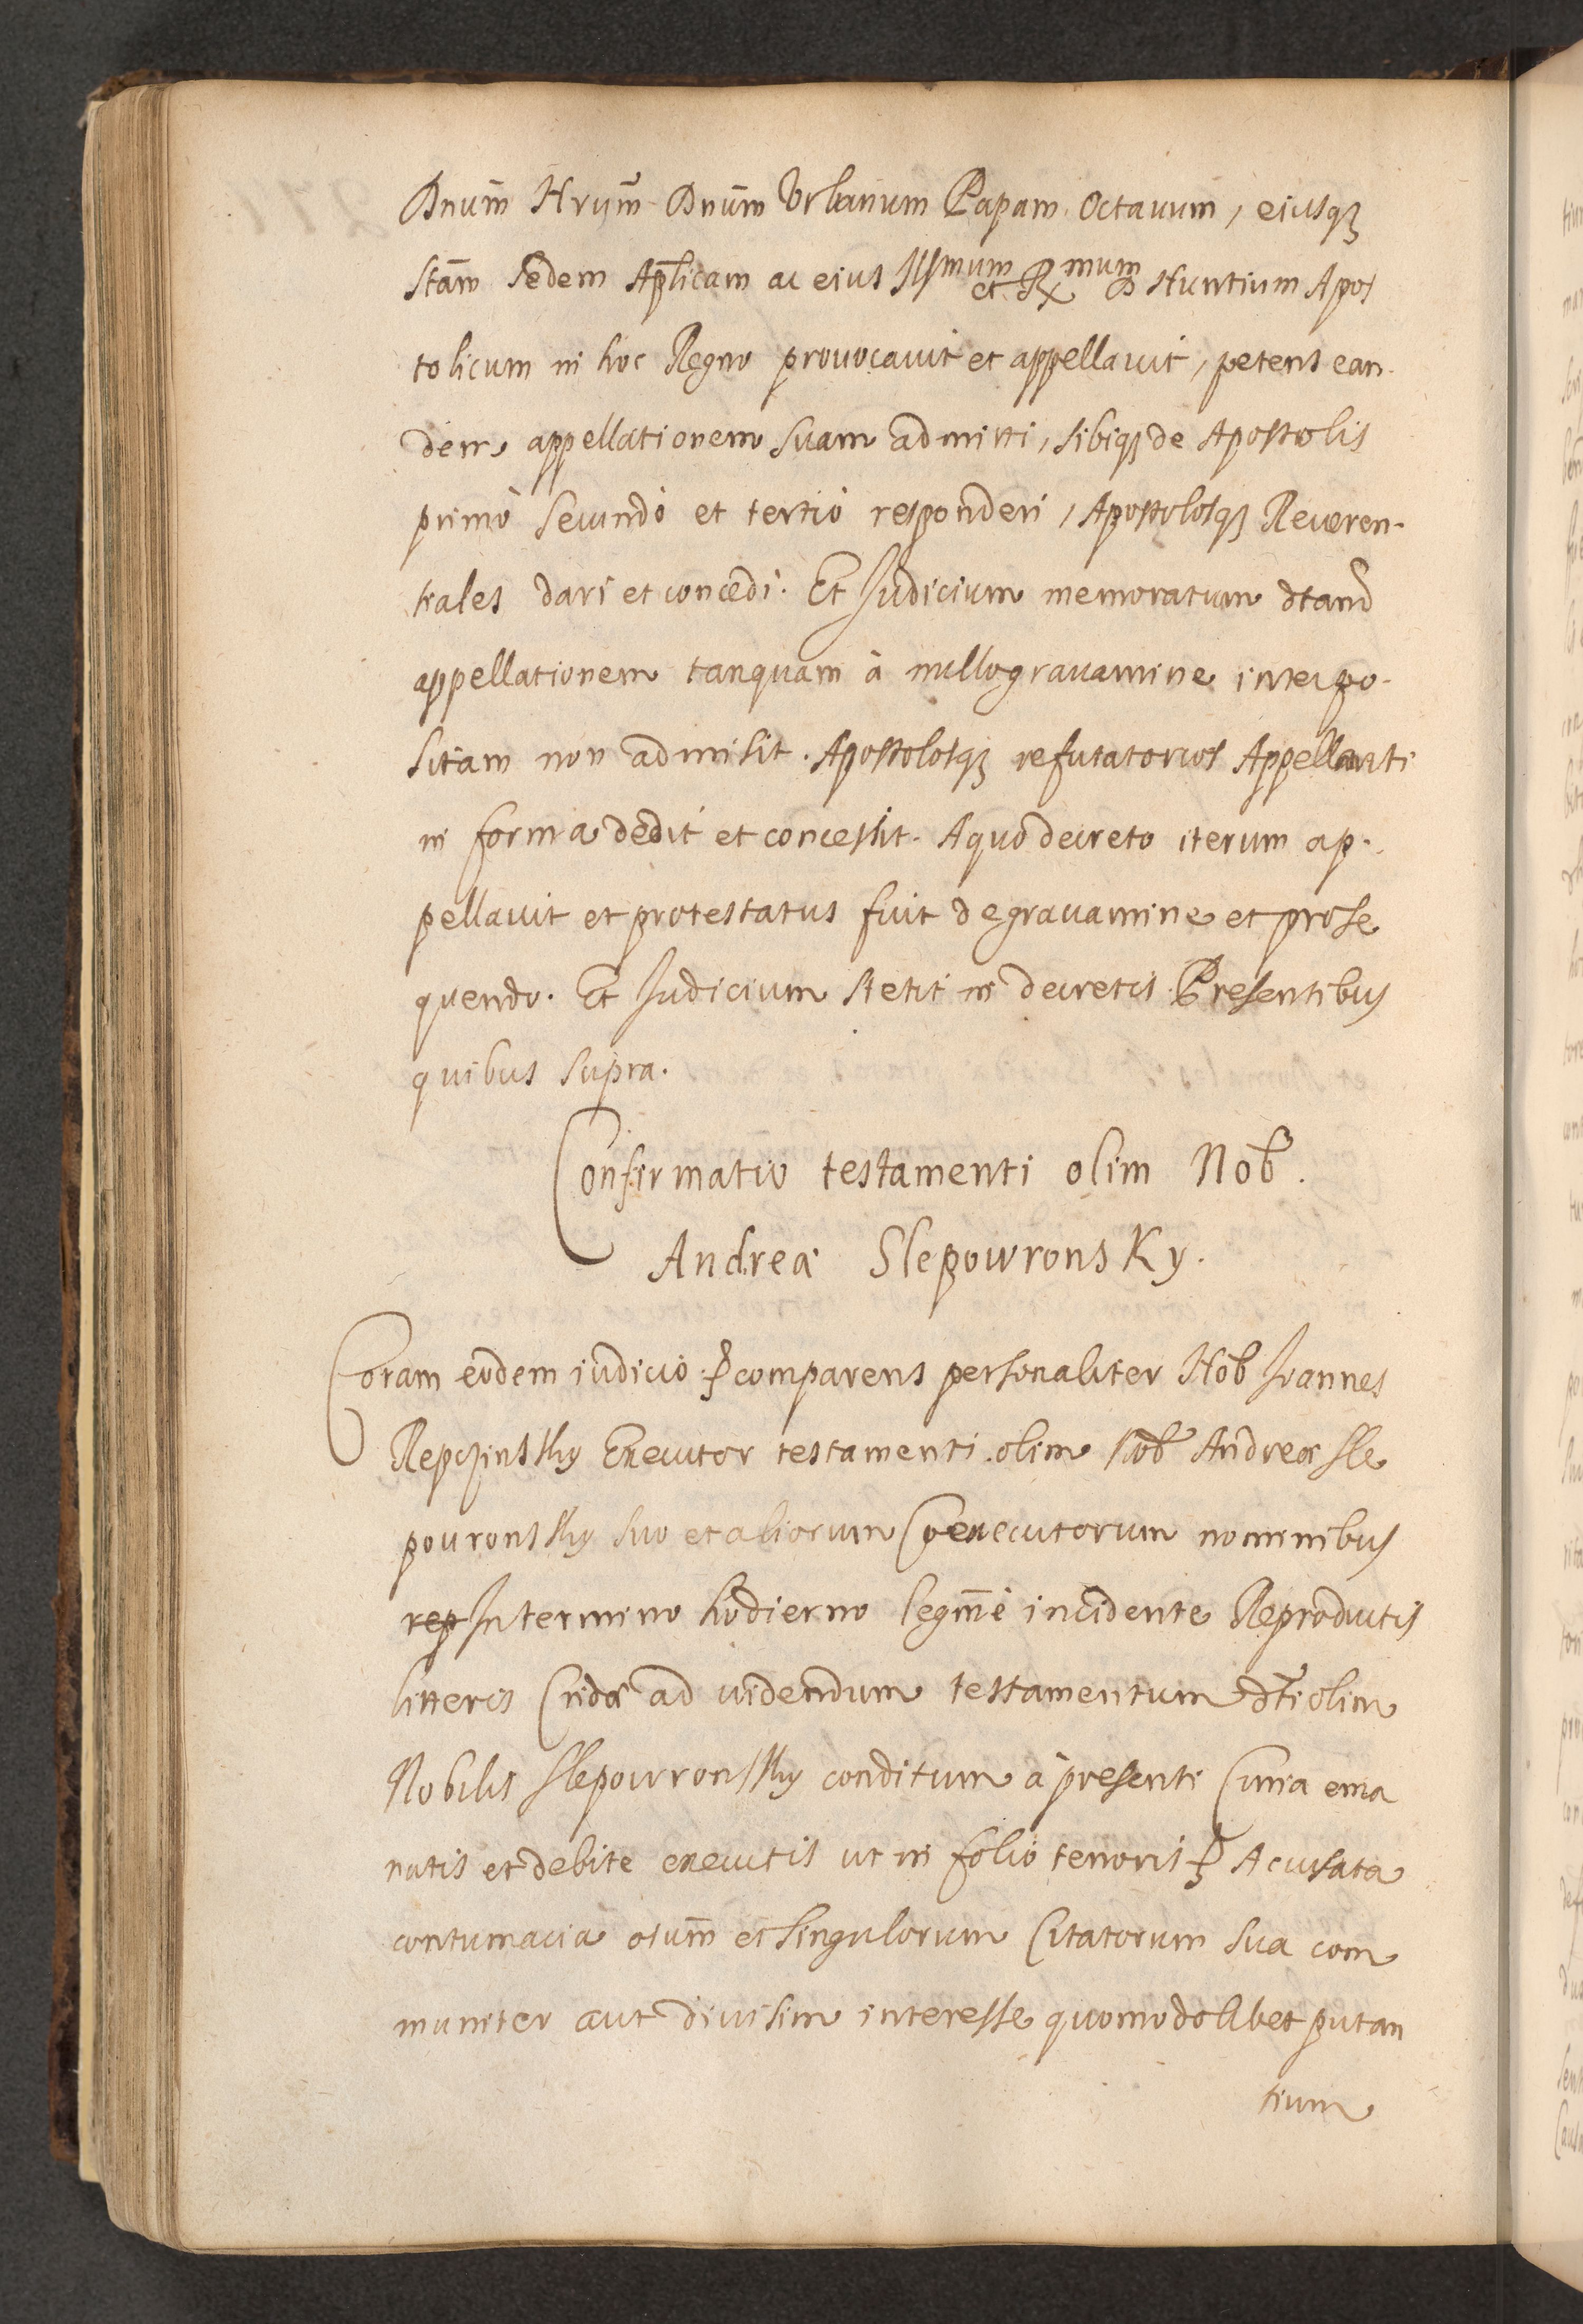 Dnum̄ Nrum̄ Dnum̄ Vrbanum Papam Octauum, eiusq3
Stām Sedem Aplicam ac eius Illmum et Rmum D Nuntium Apos
tolicum in hoc Regno prouocauit et appellauit, petens ean-
dem appellationem suam admitti, sibiq3 de Apostolis
primò secundò et tertiò responderi, Apostolosq3 Reueren-
tiales dari et concedi. Et Judicium memoratum dtand
appellationem tanquam à nullo grauamine interpo-
sitam non admisit. Apostolosq3 refutatorios Appellanti
in forma dedit et concessit. A quo decreto iterum ap-
pellauit et protestatus fuit de grauamine et prose
quendo. Et Judicium stetit in decretis. Presentibus
quibus supra.
Confirmatio testamenti olim Nob.
Andreæ Slepowronsky.
Coram eodem iudicio comparens personaliter Nob Joannes
Repczinsky Executor testamenti olim Nob Andreæ Sle
pouronsky suo et aliorum Coexecutorum nominibus
rep In termino hodierno legmē incidente Reproductis
litteris Cridæ ad uidendum testamentum dti olim
Nobilis Slepowronsky conditum à presenti Curia ema
natis et debite executis ut in folio tenoris Acusata
contumacia oium̄ et singulorum Citatorum sua com
muniter aut diuisim interesse quomodolibet putan
tium